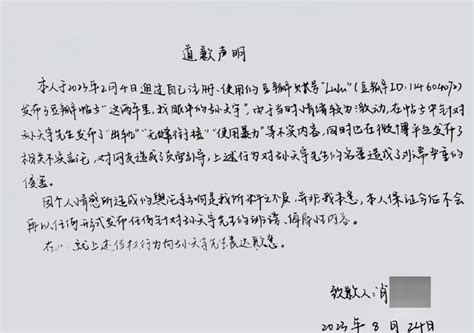 道歉声明
本人于2023年2月4日通过自己注册、使用的豆瓣账号“Lulu”(豆瓣ID:114604072)
发布了豆瓣帖子“这两年里,我眼中的孙天宇”,由于当时情绪较为激动,在帖子中针对
孙天宇先生发布了“出轨”“无缝衔接”“使用暴力”等不实内容,同时也在微博平台发布了
相关不实言论,对网友造成了负面引导,上述行为对孙天宇先生的名誉造成了非常严重的
侵害。
因个人情感所造成的舆论影响是我所料之不及,并非我本意,本人保证今后不会
再以任何形式发布任何针对孙天宇先生的诽谤、侮辱性内容。
在此,就上述侵权行为向孙天宇先生表达歉意。
致歉人:肖
2023年8月24日